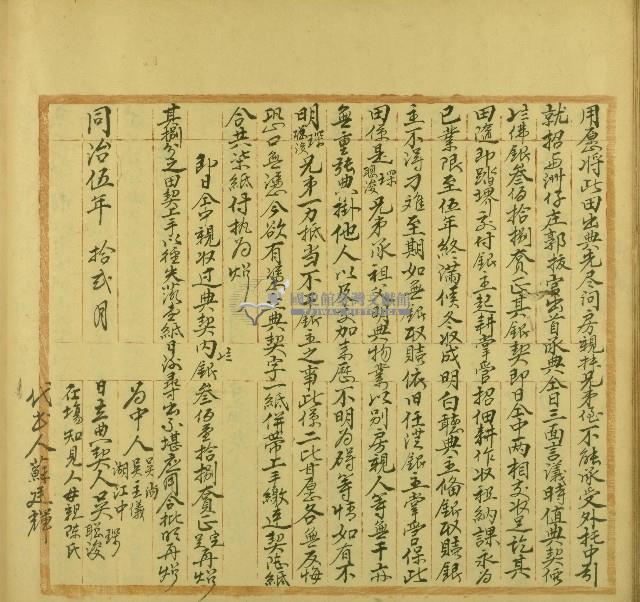 用愿將此田出典先尽问房親扶兄弟侄不能承受外托中引
就招與洲仔庄郭拔官出首承典仝日三面言議時值典契價
佛銀叁佰拾捌大員正其銀契即日仝中兩相交收足訖其
田隨即踏堺交付銀主起耕掌管招佃耕作收租納課永為
己業限至伍年終滿候冬收成明白聽典主備銀取贖銀
主不得刁难至期如無銀取贖依旧任従銀主掌管保此
田係是琛聰浚兄弟承祖父明典物業以別房親人等無干亦
無重張典掛他人以及交加来歷不明為碍等情如有不
明琛聰浚兄弟一力抵当不干銀主之事此係二比甘愿各無反悔
恐口無憑今欲有憑立典契字一紙併帶上手繳連契陸紙
合共柒紙付执為炤
即日仝中親收过典契内銀叁佰拾捌大員正完足再炤
其捌分之田契上手以経失落壱紙日后尋出不堪応用合批明再炤
同治伍年 拾弍月 日立典契人吳琛聰浚
為中人吳尚 吳主儀 湖江中
在塲知見人母親陈氏
代书人蘇廷輝
國史館臺灣文獻館
TAIWAN HISTORICA